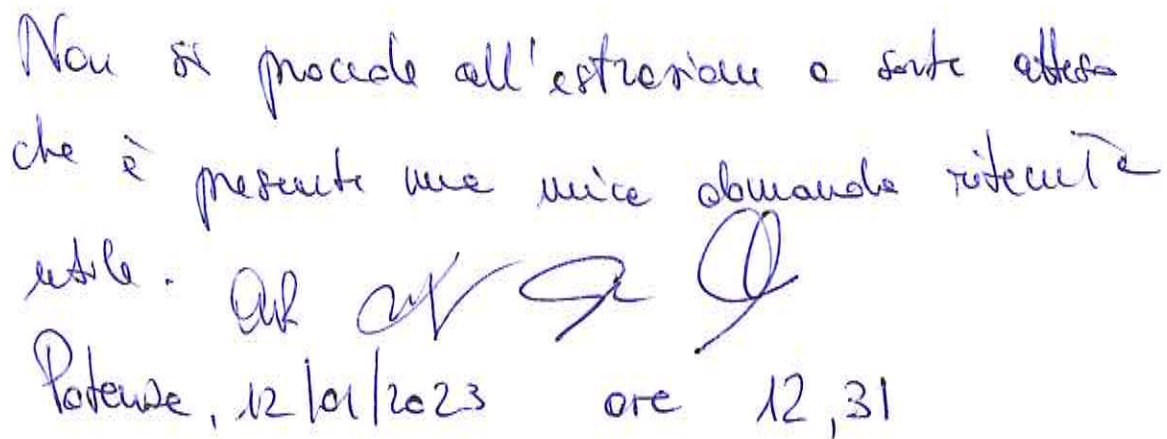 Non si procede all'estrazione a sorte atteso
che è presente una unica domanda ritenuta
utile.
Potenza, 12/01/2023 ore 12,31